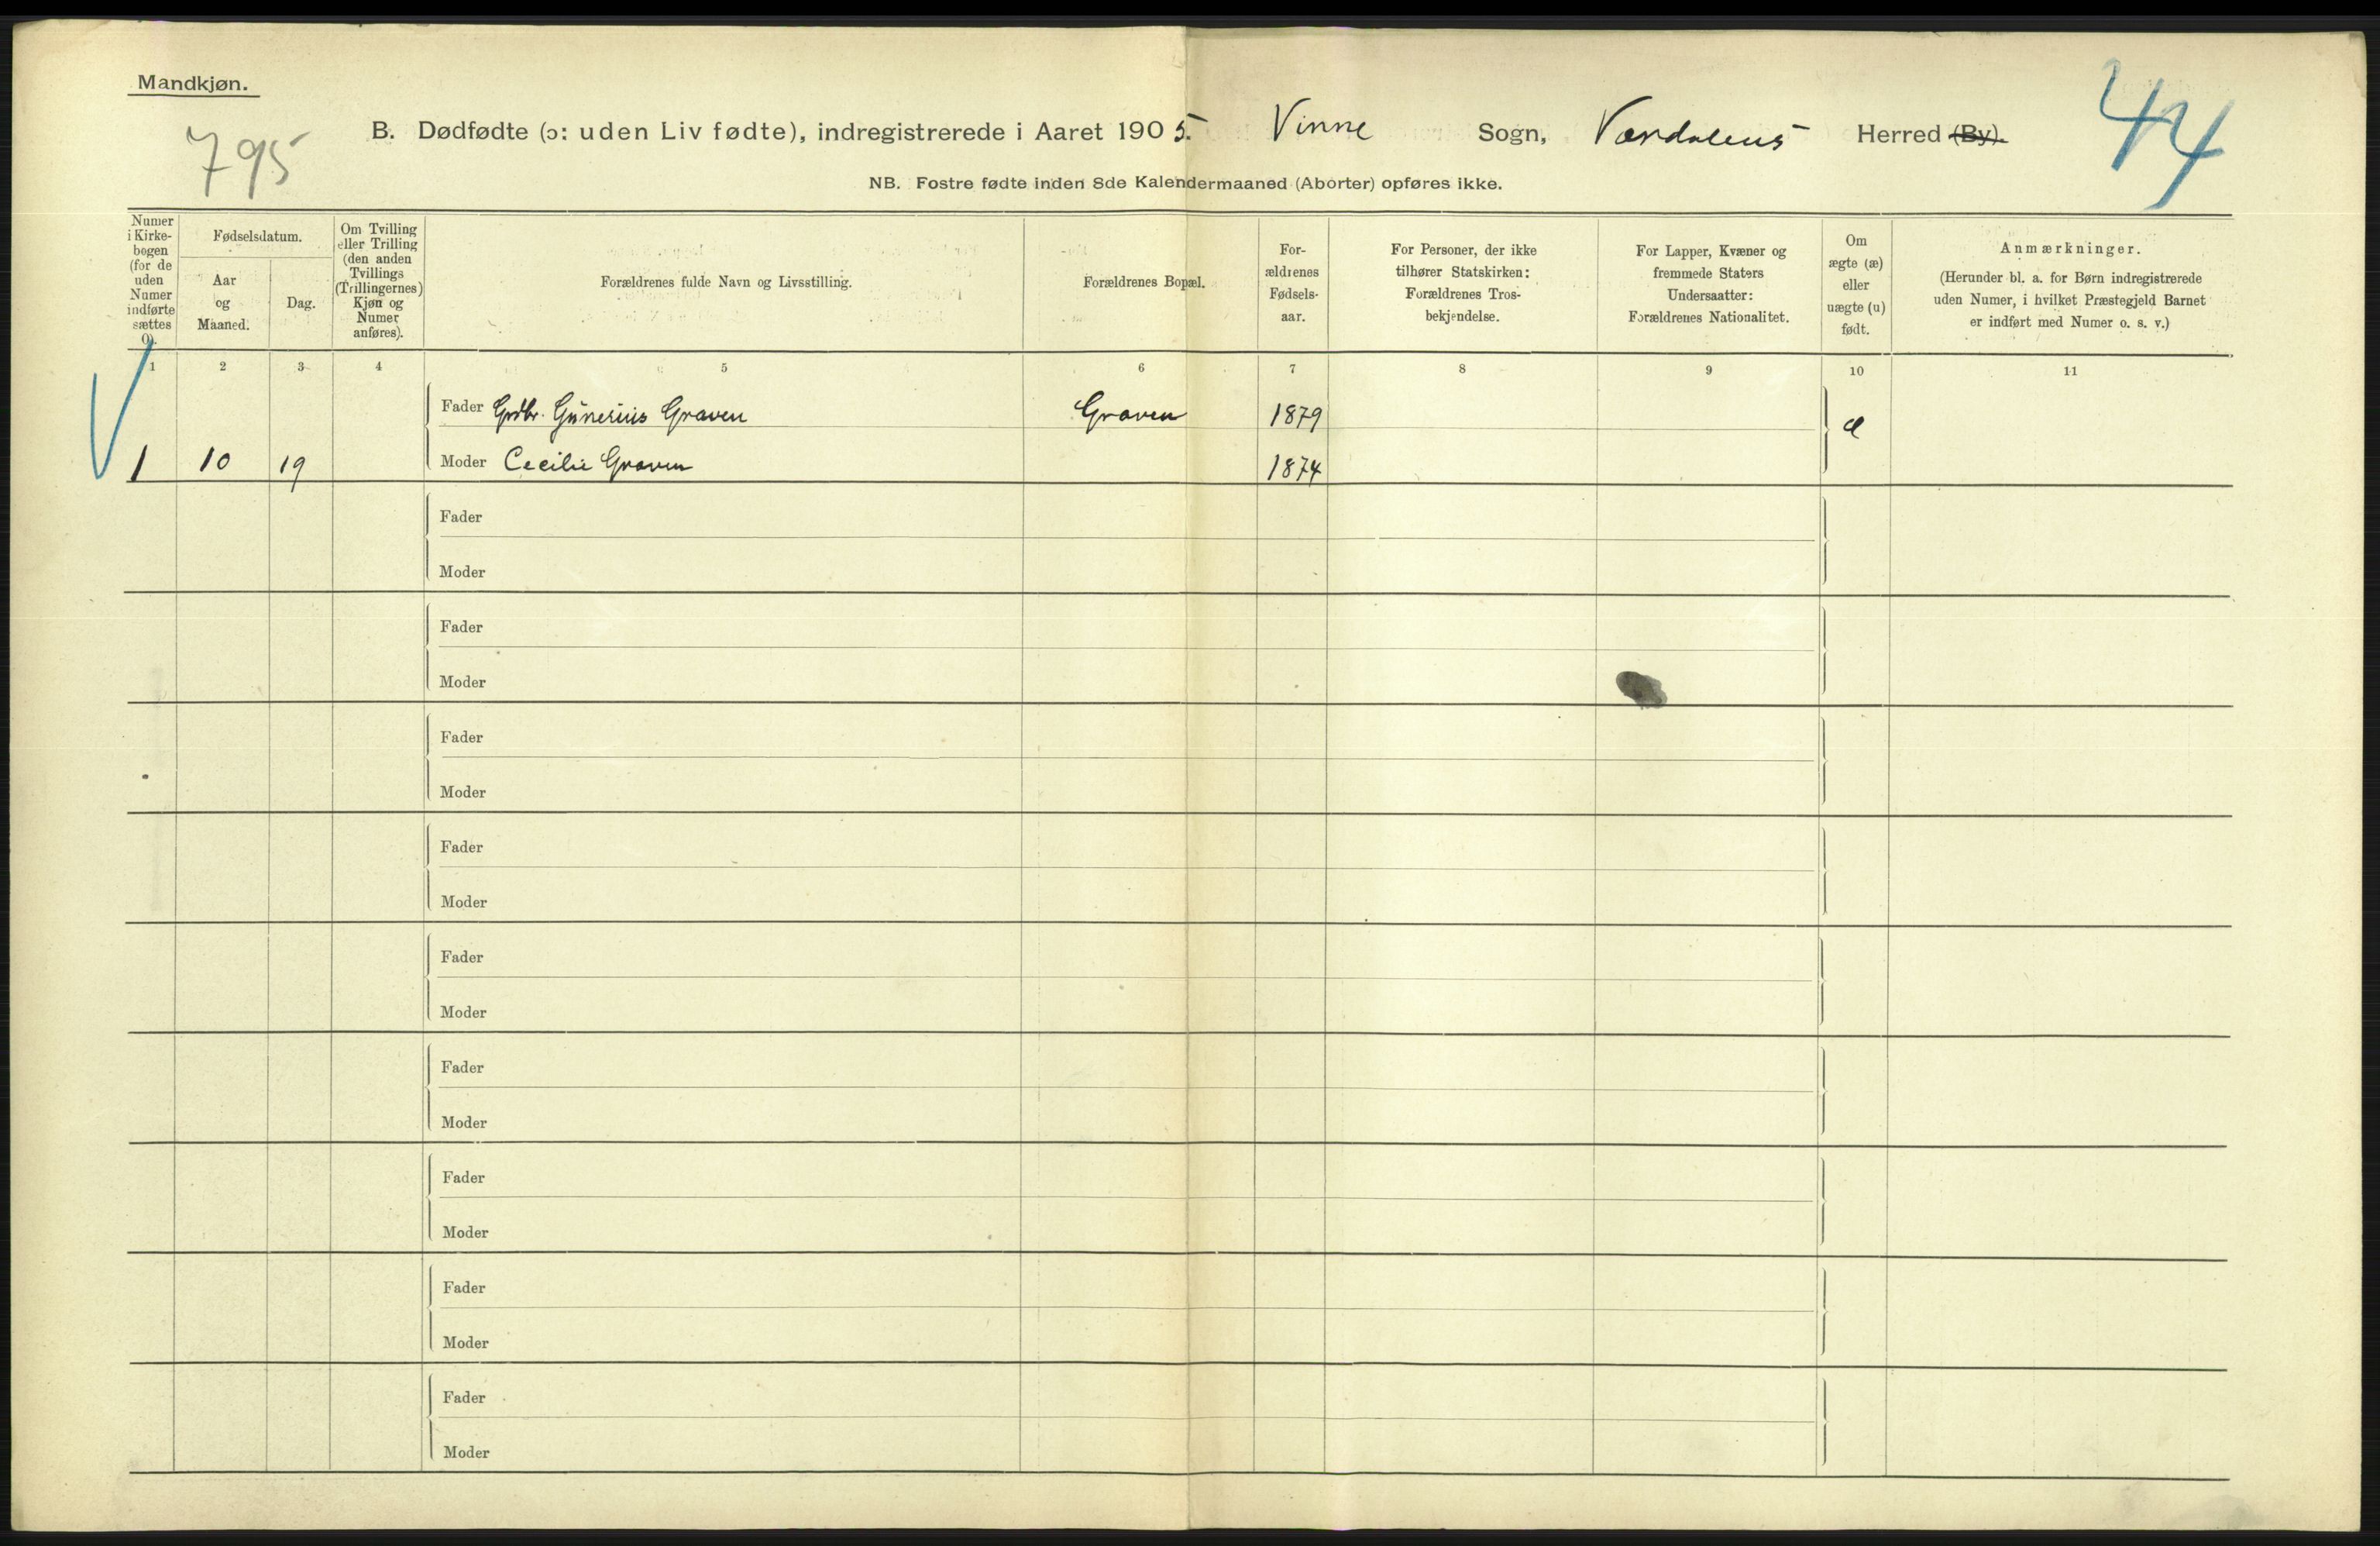 Mandkjøn.
795
B. Dødfødte (ɔ: uden Liv fødte), indregistrerede i Aaret 1905. Vinne Sogn, Værdalens Herred (By).
44
NB. Fostre fødte inden 8de Kalendermaaned (Aborter) opføres ikke.
Numer
i Kirke-
bogen
(for de
uden
Numer
indførte
sættes
0).
Fødselsdatum.
Aar
og
Maaned.
Dag.
Om Tvilling
eller Trilling
(den anden
Tvillings
(Trillingernes)
Kjøn og
Numer
anføres).
Forældrenes fulde Navn og Livsstilling.
Forældrenes Bopæl.
For-
ældrenes
Fødsels-
aar.
For Personer, der ikke
tilhører Statskirken:
Forældrenes Tros-
bekjendelse.
For Lapper, Kvæner og
fremmede Staters
Undersaatter:
Forældrenes Nationalitet.
Om
ægte (æ)
eller
uægte (u)
født.
Anmærkninger.
(Herunder bl. a. for Børn indregistrerede
uden Numer, i hvilket Præstegjeld Barnet
er indført med Numer o. s. v.)
1 2 3 4 5 6 7 8 9 10 11
Fader Grdbr. Gunerius Graven Graven 1879 æ
1 10 19 Moder Cecilie Graven 1874
Fader
Moder
Fader
Moder
Fader
Moder
Fader
Moder
Fader
Moder
Fader
Moder
Fader
Moder
Fader
Moder
Fader
Moder